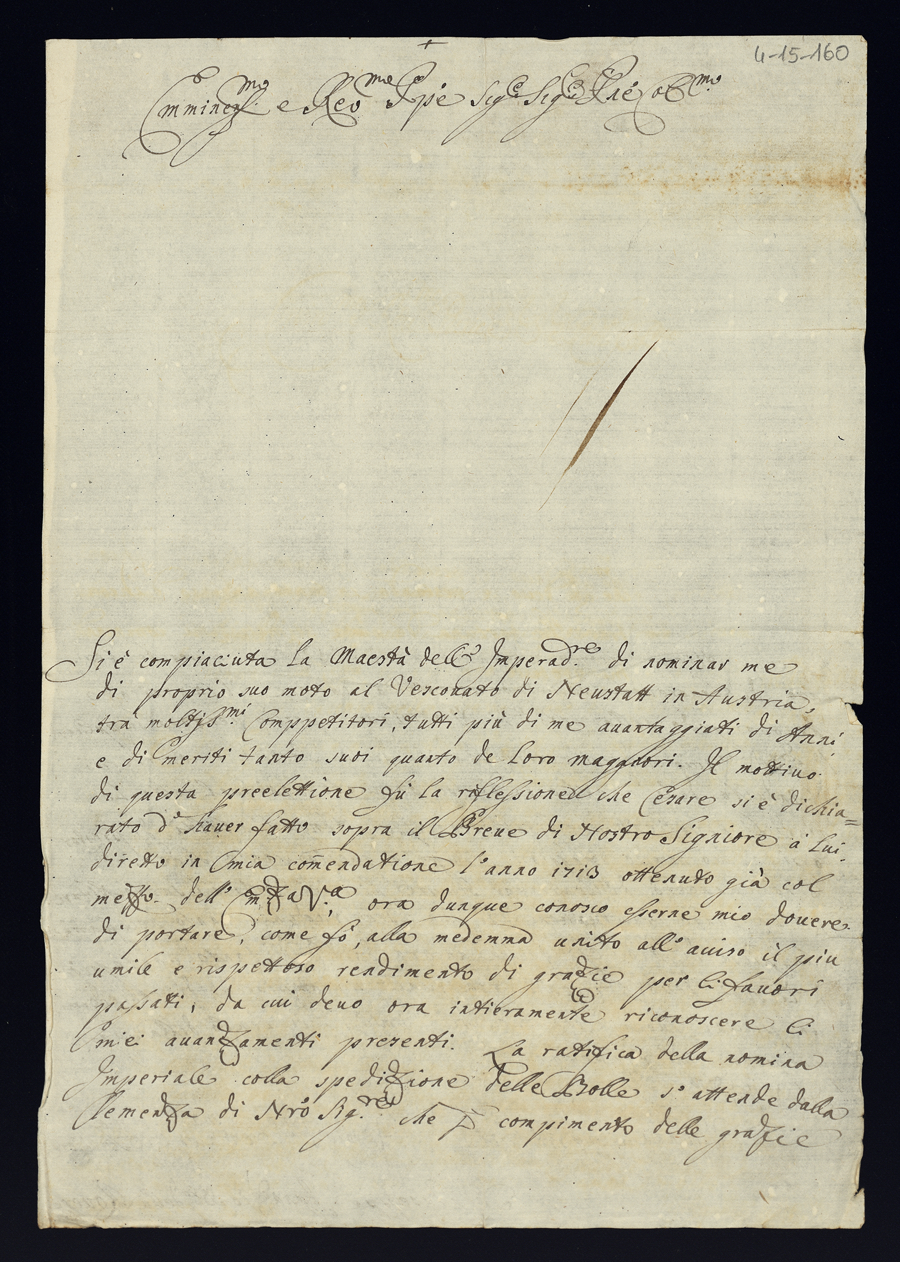 4-15-160
Emminẽmo: e Revmo Ppẽ Sigre Sigre Pne Colmo:
Si è compiaciuta la Maestà dell' Imperadre: di nominar me
di proprio suo moto al Vesconato di Neustatt in Austria,
tra moltissmi: Comppetitori, tutti più di me avantaggiati di Anni
e di meriti tanto suoi quanto de Loro maggiori. Il mottivo
di questa preelettione fù la riflessione che Cesare si è dichia=
rato d'haver fatto sopra il Breve di Nostro Signiore à lui
diretto in mia com̃endatione l'anno 1713 ottenuto già col
mezzo dell' EmzaVra, ora dunque conosco esserne mio dovere
di portare, come fò, alla medemma unito all'aviso il piu
umile e rispettoso rendimento di grazie per li favori
passati, da cui devo ora intieramente riconoscere li
miei avanzamenti presenti. La ratifica della nomina
Imperiale colla spedizione delle Bolle s'attende dalla
Clemenza di Nrõ Sigre che p compimento delle grazie